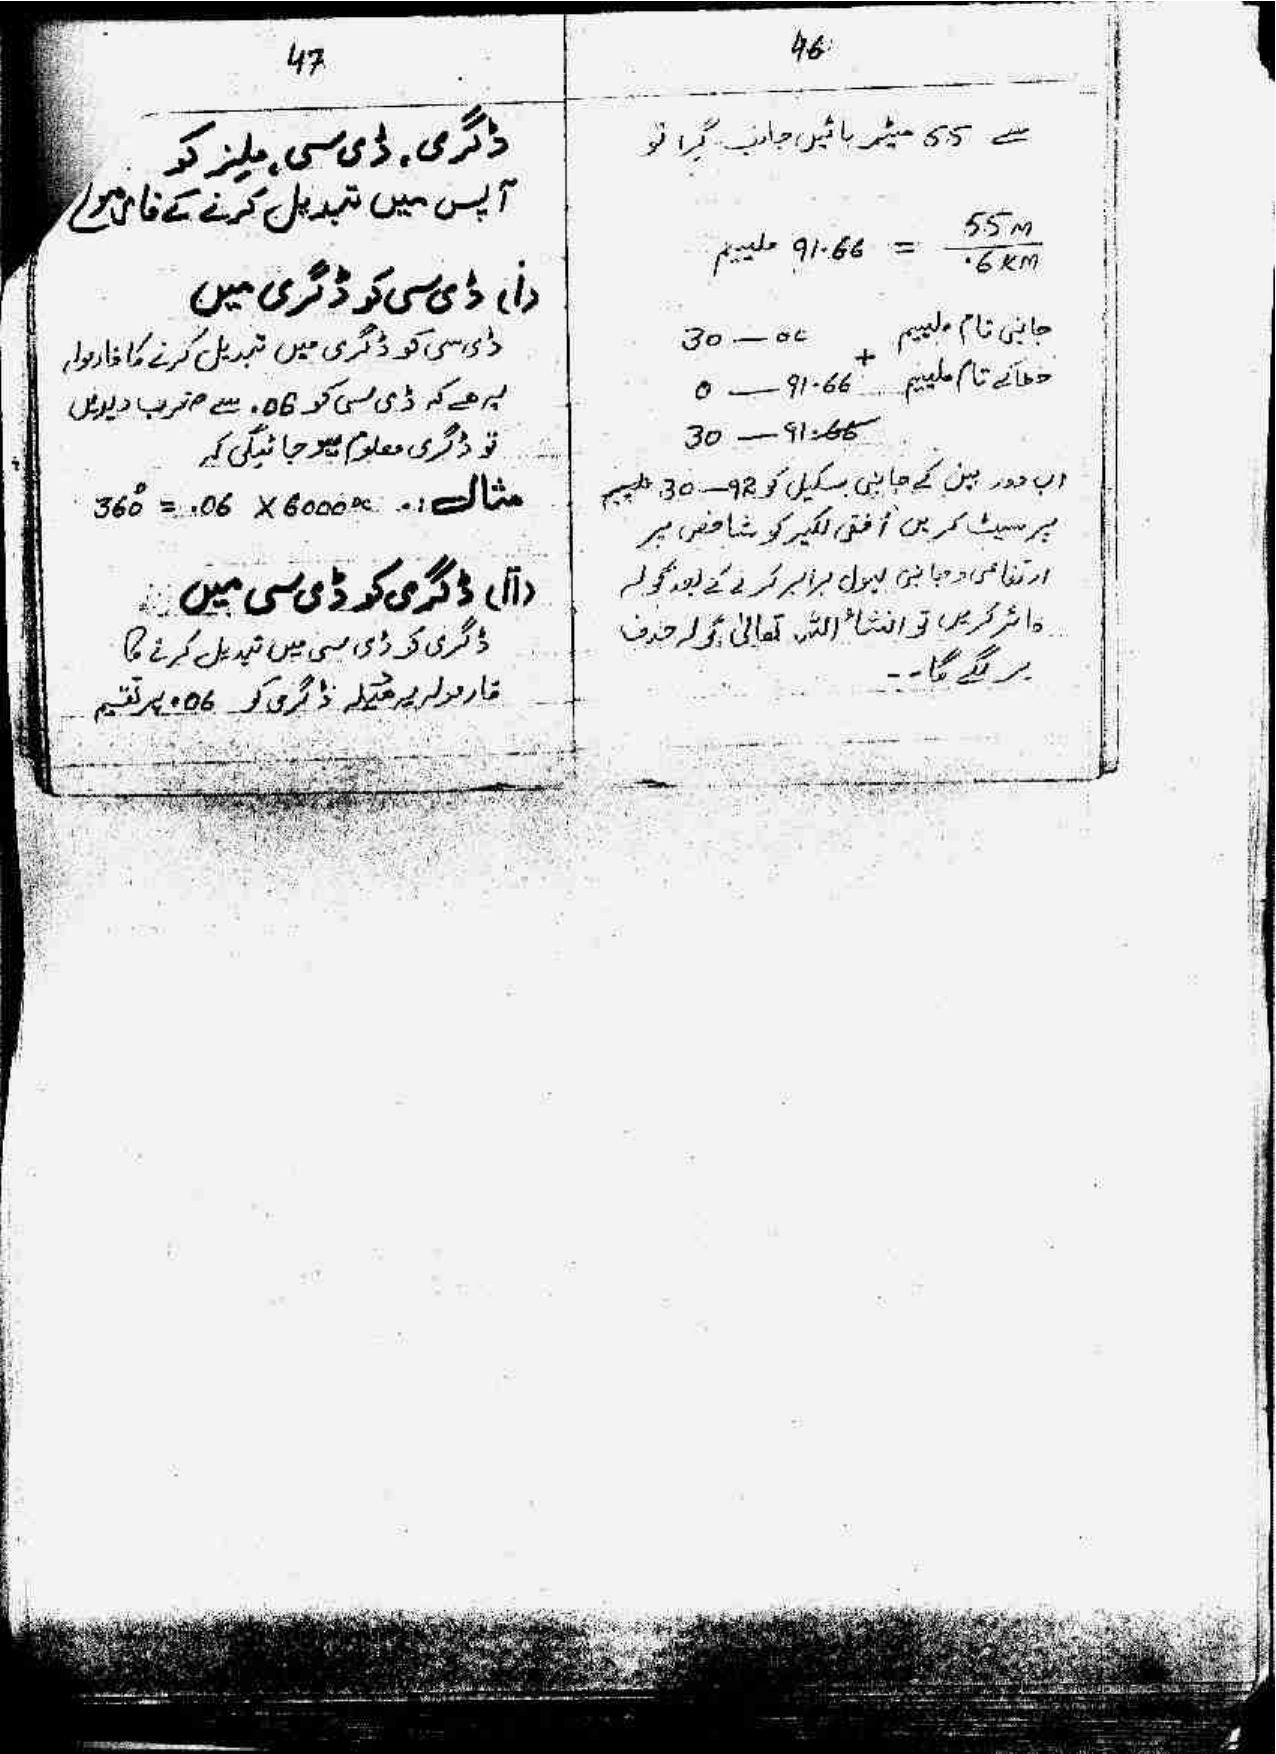 46
سے 55 میٹر بائیں جانب گرا تو
55 M
91.66 ملییم = ———
.6 KM
جانبی تام ملییم 00 — 30
+
خطائے تام ملییم 91.66 — 0
30 — 91.66
اب دور بین کے جانبی سکیل کو 92—30 ملییم
پر سیٹ کریں اُفقی لکیر کو شاخص پر
ارتفاعی و جانبی لیول برابر کرنے کے بعد گولہ
فائر کریں تو انشاء اللہ تعالیٰ گولہ ہدف
پر لگے گا--
47
ڈگری، ڈی سی، ملیز کو
آپس میں تبدیل کرنے کے فارمولے
(i) ڈی سی کو ڈگری میں
ڈی سی کو ڈگری میں تبدیل کرنے کا فارمولہ
یہ ھے کہ ڈی سی کو 06. سے ضرب دیدیں
تو ڈگری معلوم ہو جائیگی کہ
مثال :. 360° = .06 X 6000
(ii) ڈگری کو ڈی سی میں
ڈگری کو ڈی سی میں تبدیل کرنے کا
فارمولہ یہ ڈگری کو 06. پر تقسیم